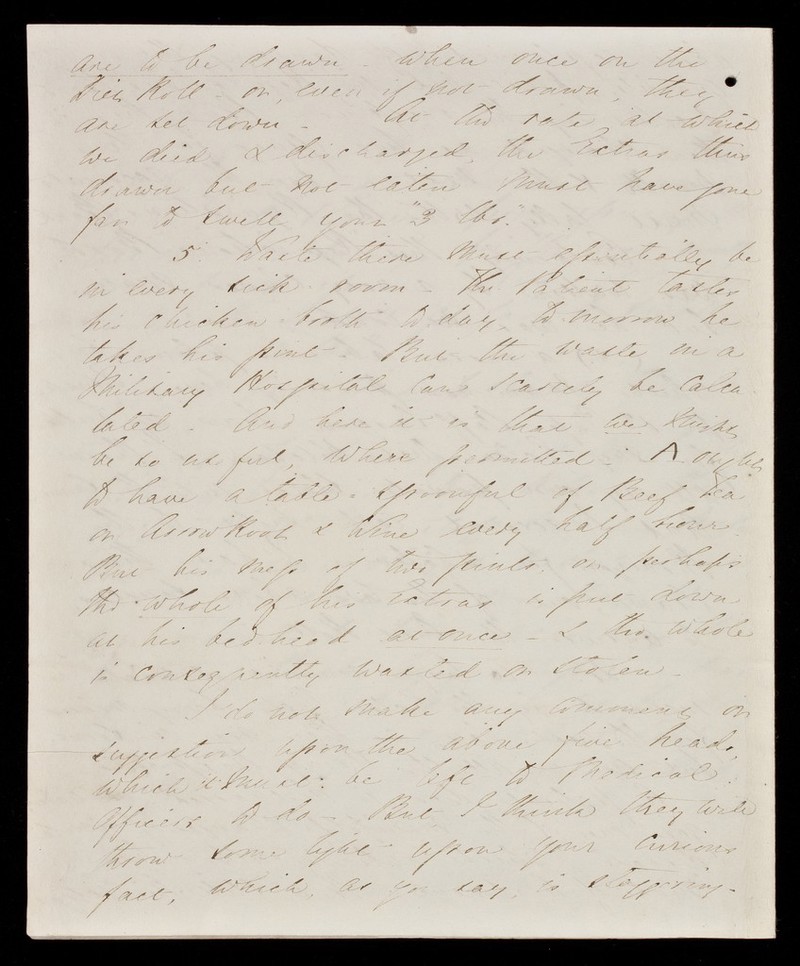 are to be drawn - When once on the
Diet Roll - or, even if not drawn, they
are set down - At the rate at which
we died & discharged, the Extras thus
drawn but not eaten must have gone
far to swell your "3 lbs."
5. Waste there must essentially be
in every sick room - The Patient tastes
his chicken broth to day, to morrow he
takes his pint - But the waste in a
Military Hospital can scarcely be calcu-
lated - And here it is that we might
be so useful, where permitted - A ought
to have a table-spoonful of Beef Tea
or Arrow Root & Wine every half hour.
But his mess of two pints, or perhaps
the whole of his Extras is put down
at his bed head at once - & the whole
is consequently wasted or stolen -
I do not make any comment or
suggestion upon the above five heads,
which it must be left to Medical
Officers to do - But I think they will
throw some light upon your curious
fact, which, as you say, is staggering -